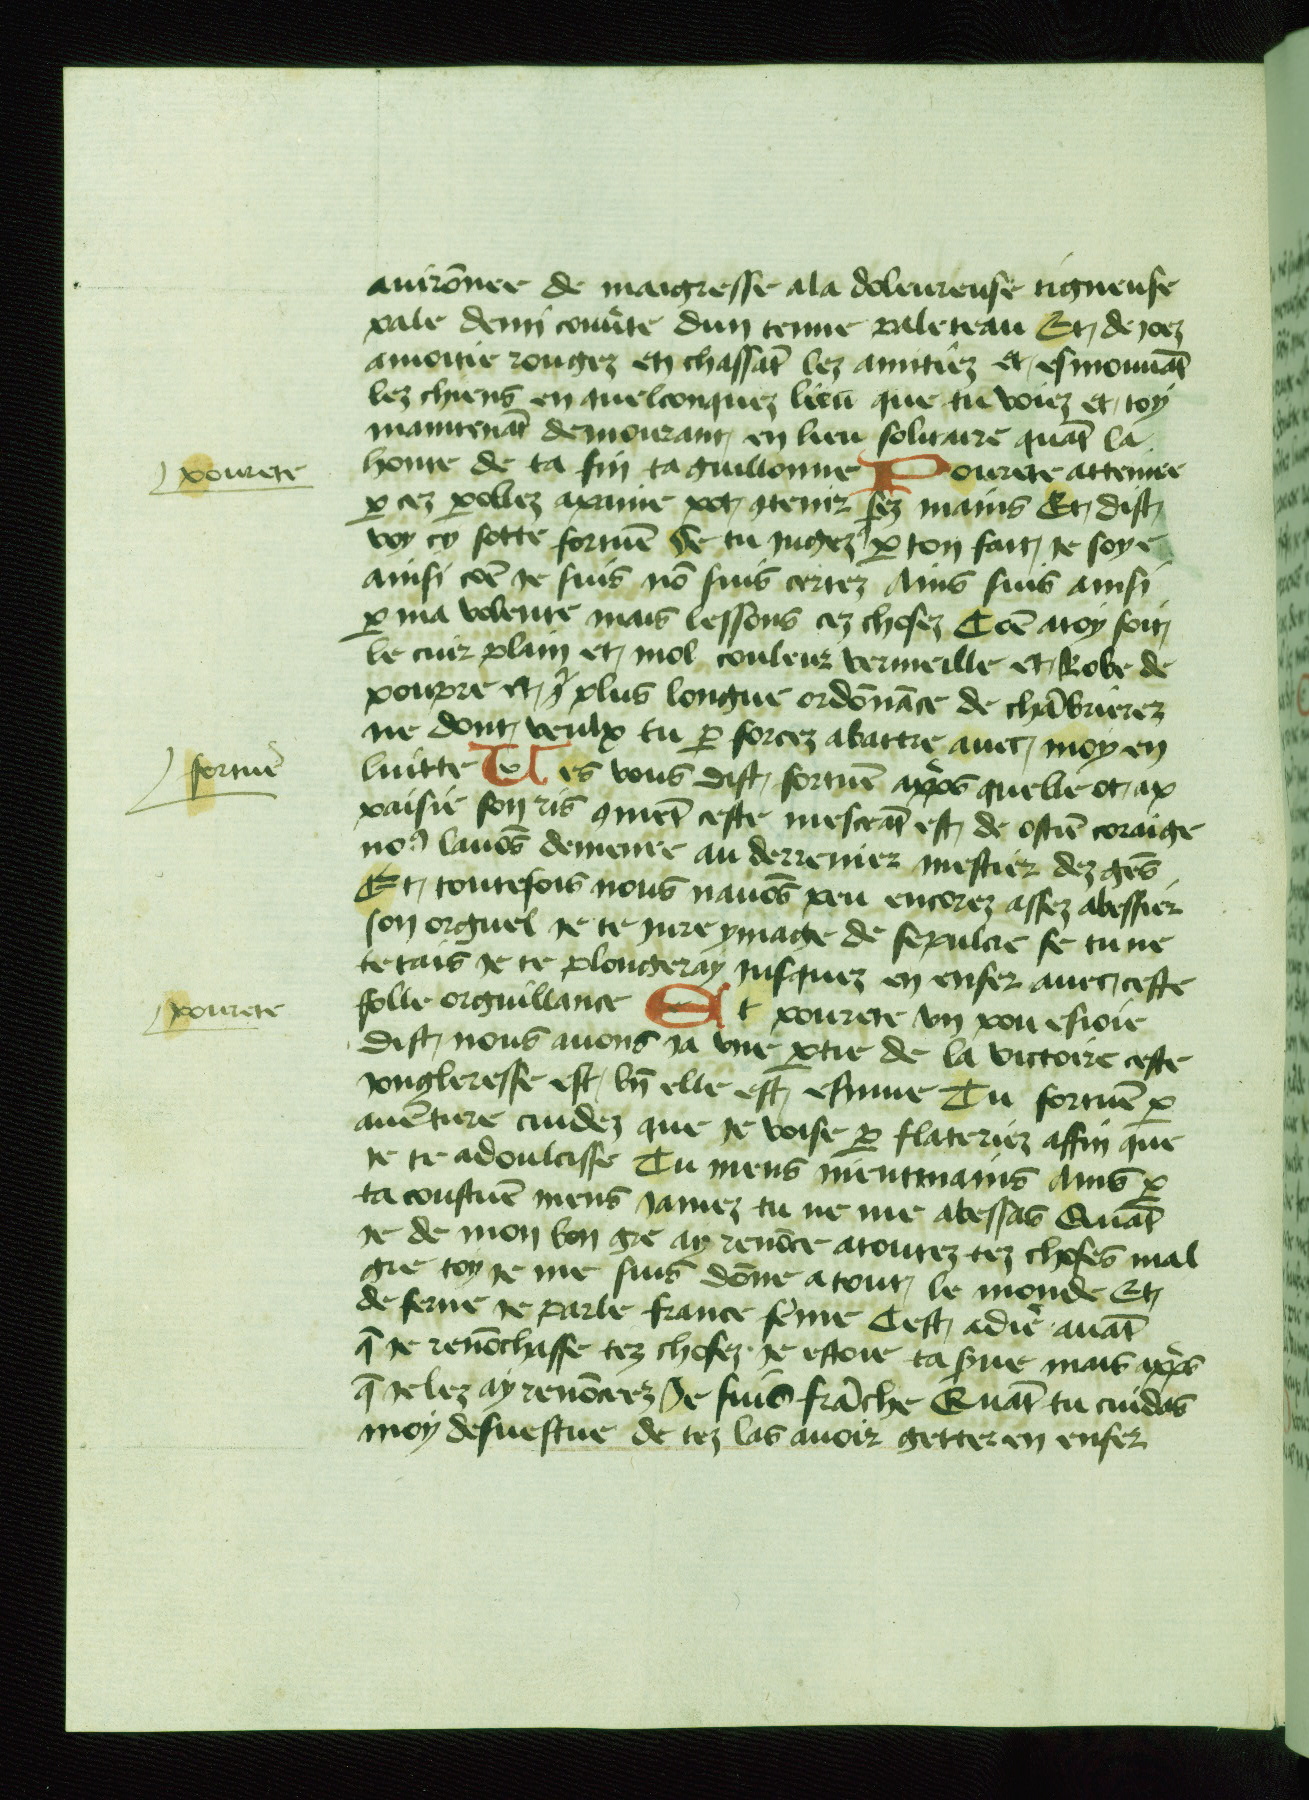 auirõnee de maigresse a la doleureuse tigneuse
pale demi couu'te dun tenue paleteau Et de joez
amoitie rougez en chassãt lez amitiez et esmouuãt
lez chiens en quelconquez lieu que tu voiez et toy
maintenãt demourant en lieu solitaire quãt la
pourete
honte de ta fin taguillonne Pourete attenuee
ꝑ cez ꝑollez apaine pot ꝯtenir sez mains Et dist
voy cy sotte fortuẽ Se tu jugez ꝑ ton fait je soye
ainsi cõe je suis nõ suis certez Ains suis ainsi
ꝑ ma volente mais lessons cez chosez Cõe a toy soit
le cuir plain et mol couleur vermeille et Robe de
poupre et plus longue ordõnãce de chãbrierez
ne dont veulx tu ꝑ forcez abattre auec moy en
fortuẽ
luitte Ves vous dist fortuẽ apᷓs quelle ot ap
paisie son ris ꝯmẽt ceste mesceãt est de ostiẽ coraige
noꝰ lauõs demenee au derrenier mestier dez gẽs
Et toutefois nous nauõs peu encorez assez abessier
son orguel je te jure ymage de sepulcre se tu ne
te tais je te plongeray jusquez en enfer auec ceste
pourete
folle orguillance Et pourete vn pou esioie
dist nous auons ja vne ꝑtie de la victoire ceste
jongleresse est bñ elle est esmue Tu fortuẽ ꝑ
auẽture cuidez que je voise ꝑ flateriez affin que
je te adoulcisse Tu mens mentmains Ains ꝑ
ta coustuẽ mens jamez tu ne me abessas Quãt
je de mon bon gre ay renõce a toutez tez choses mal
gre toy je me suis dõne a tout le monde Et
de serue je parle france fẽme Cest adiẽ auãt
q̃ je renõchasse tez chosez je estoie ta sᵉue mais apᷓs
q̃ je lez ay renõceez Je suis frãche Quãt tu cuidas
moy desuestue de tez las auoir getter en enfer